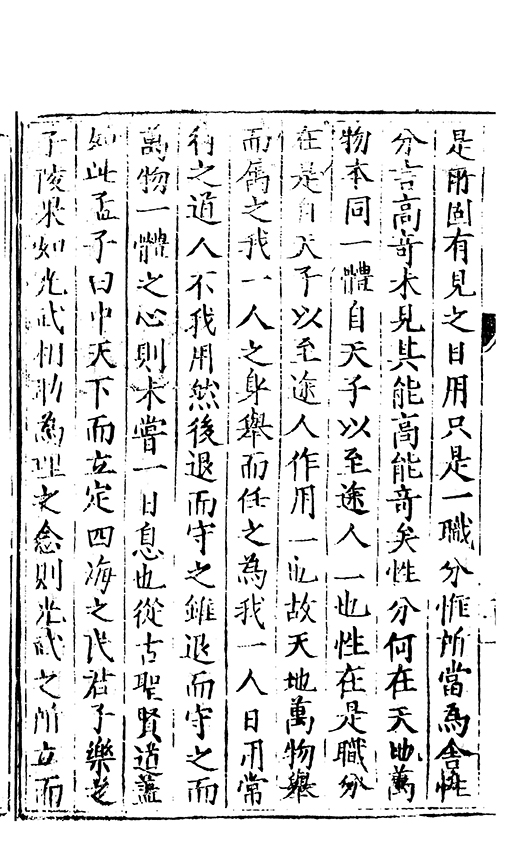 是爾固有見之日用只是一職分惟所當為舍性
分言高奇未見其能高能奇矣性分何在天地萬
物本同一體自天子以至途人一也性在是職分
在是自天子以至途人作用一也故天地萬物舉
而屬之我一人之身舉而任之為我一人日用常
行之道人不我用然後退而守之雖退而守之而
萬物一體之心則未嘗一日息也從古聖賢道蓋
如此孟子曰中天下而立定四海之民君子樂之
子陵果如光武相助為理之念則光武之所立而